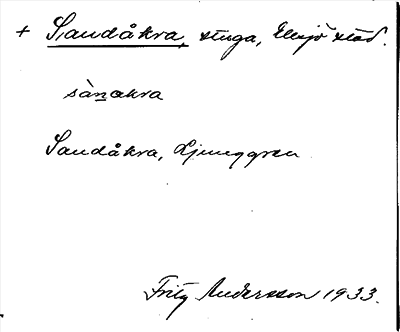 + Sandåkra, stuga, Eksjö stad.
sànakra
Sandåkra, Ljunggren
Fritz Andersson 1933.